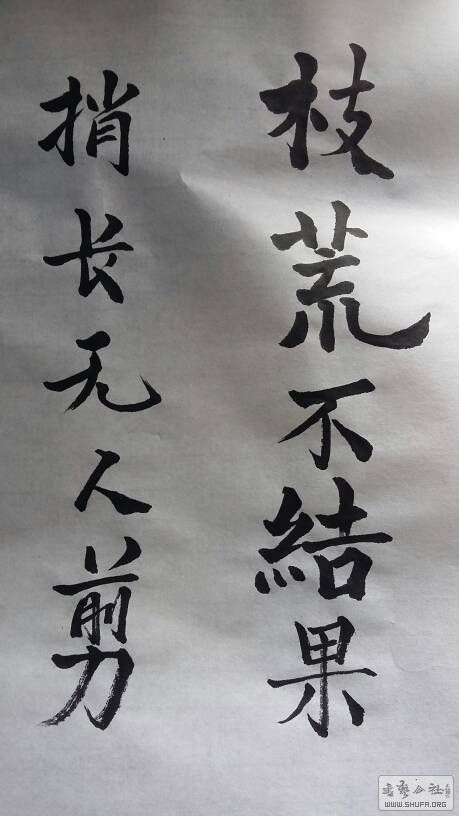 枝荒不結果
捎长无人剪
書艺公社
WWW.SHUFA.ORG